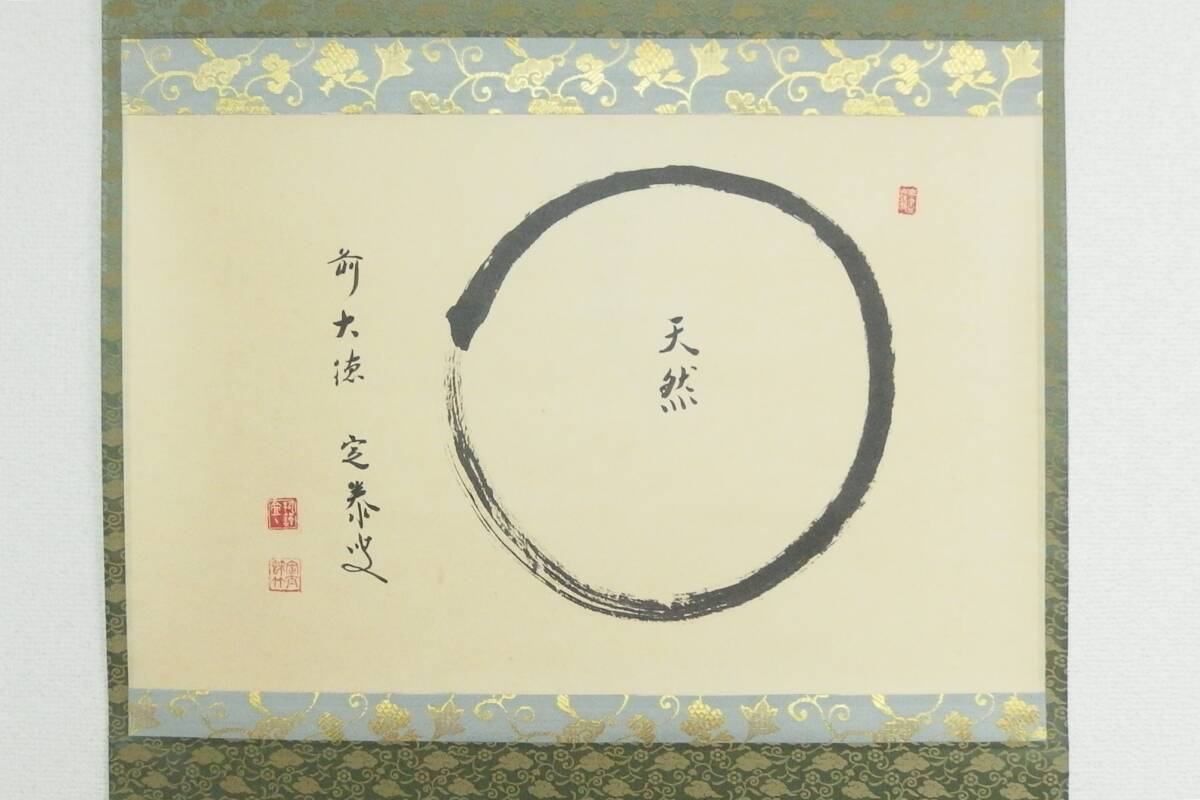 天然
前大徳 定泰叟